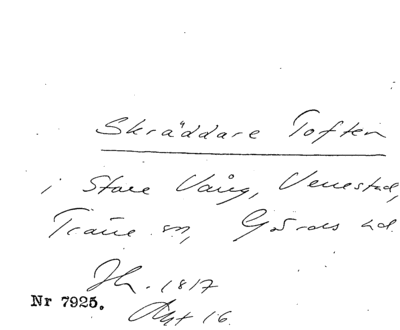 Skräddare Toften
i Stora Vång, Venestad,
Träne sn, Gärds hd.
Jh. 1817
Nr 7925.
Akt 16